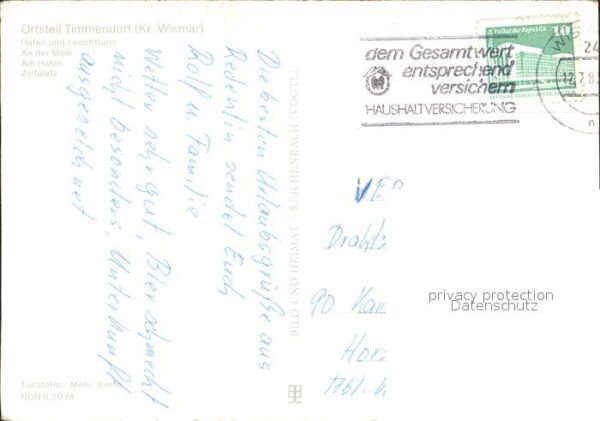 Ortsteil Timmendorf (Kr. Wismar)
Hafen und Leuchtturm
An der Mole
Am Hafen
Zeltplatz
Die besten Urlaubsgrüße aus
Redentin sendet Euch
Rolf u. Familie
Wetter sehr gut, Bier schmeckt
nicht besonders, Unterkunft
ausgezeichnet
BILD UND HEIMAT REICHENBACH
Farbfotos: Mohr, Berlin
DDR 0,20 M
dem Gesamtwert
entsprechend
versichern
HAUSHALTVERSICHERUNG
Palast der Republik
10
WIS
24
12.7.8
VEB
Draht
90
1761
privacy protection
Datenschutz